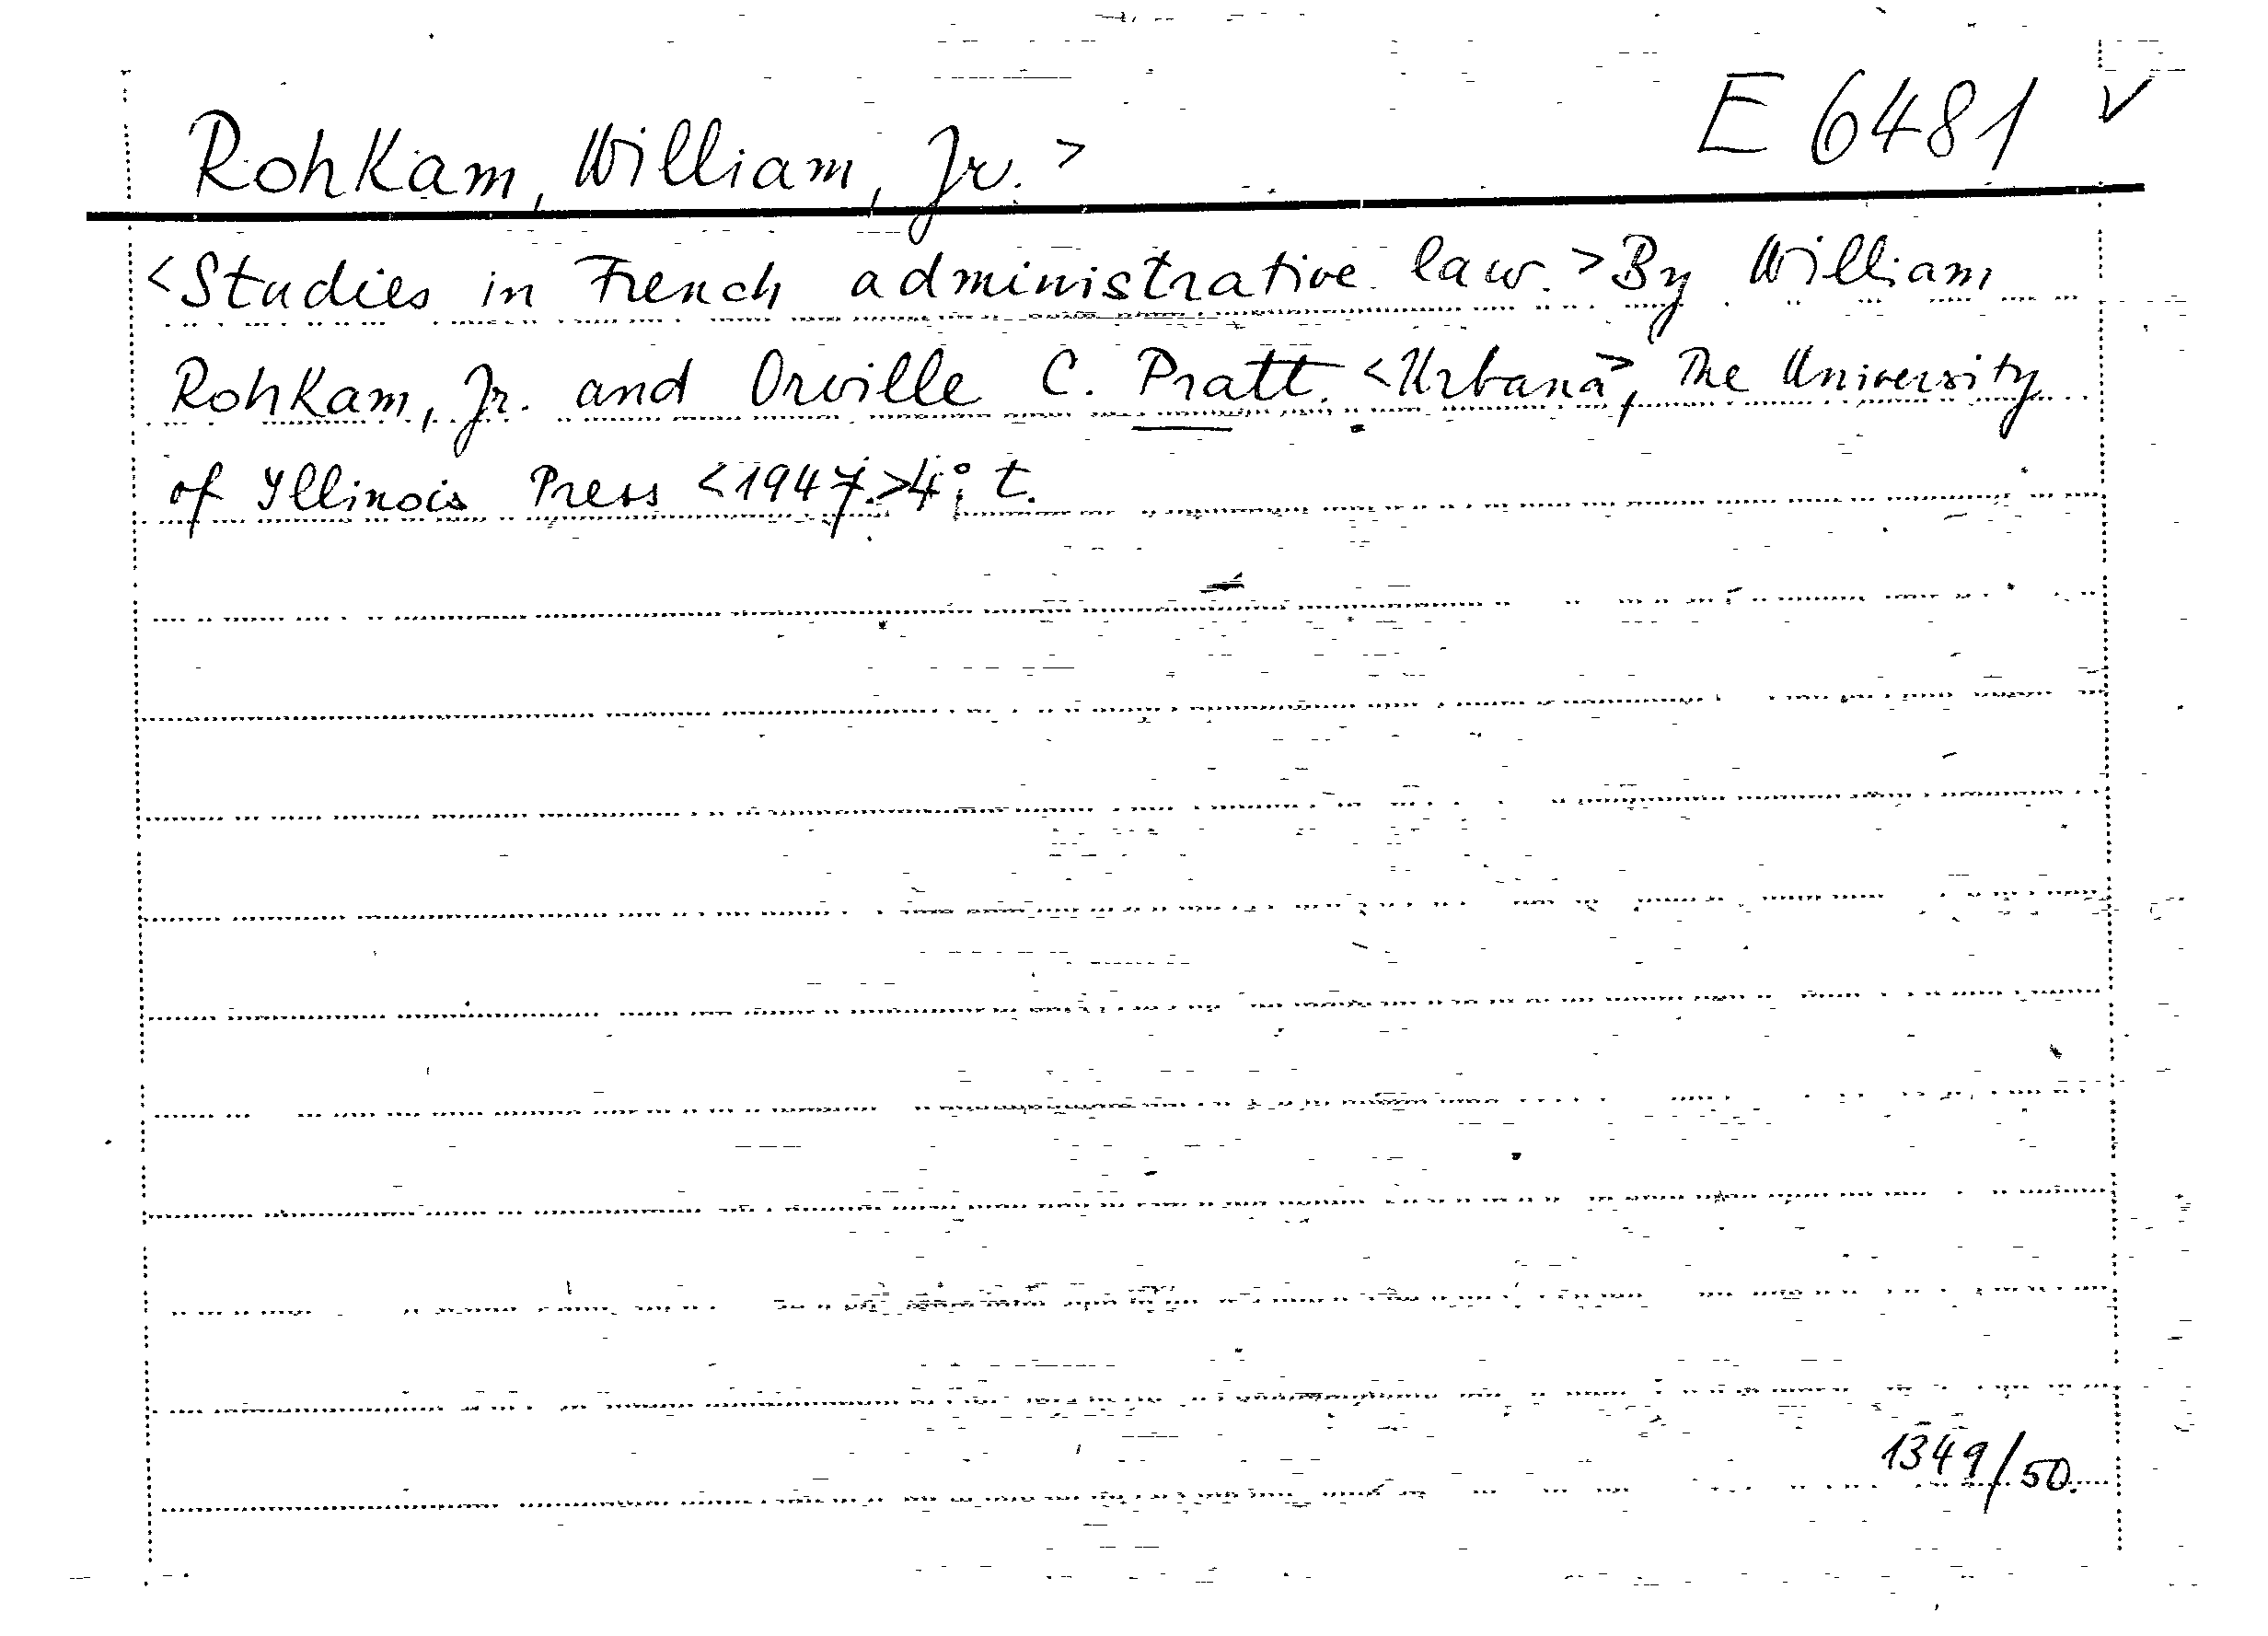 Rohkam, William, Jr. > E 6481 ✓
<Studies in French administrative law.> By William
Rohkam, Jr. and Orville C. Pratt. <Urbana>, The University
of Illinois Press <1947.> 4°; t.
1349/50.